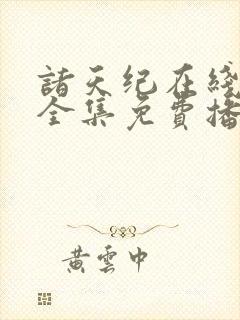 諸天纪在綫
全集免費播
黄雲中